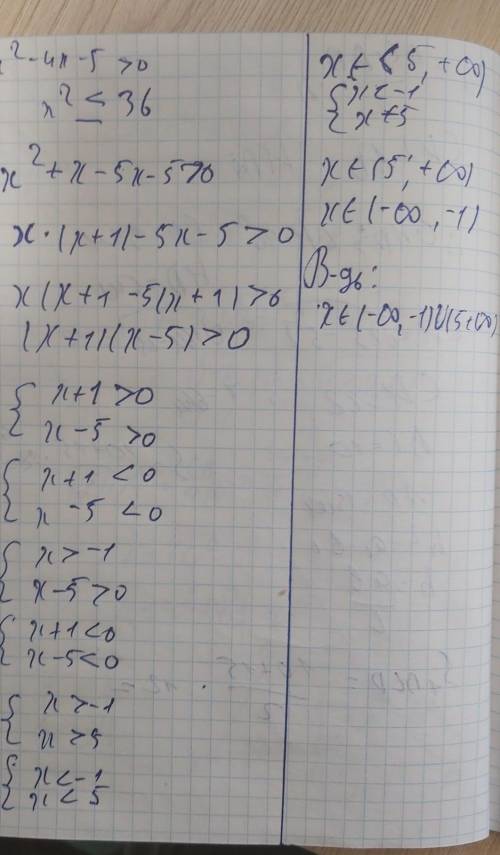 x² - 4x - 5 > 0
x² ≤ 36
x² + x - 5x - 5 > 0
x · (x + 1) - 5x - 5 > 0
x (x + 1 - 5(x + 1) > 0
(x + 1)(x - 5) > 0
{ x + 1 > 0
x - 5 > 0
{ x + 1 < 0
x - 5 < 0
{ x > -1
x - 5 > 0
{ x + 1 < 0
x - 5 < 0
{ x > -1
x > 5
{ x < -1
x < 5
x ∈ (5, +∞)
{ x < -1
x < 5
x ∈ (5, +∞)
x ∈ (-∞, -1)
В-дь:
x ∈ (-∞, -1) ∪ (5 +∞)